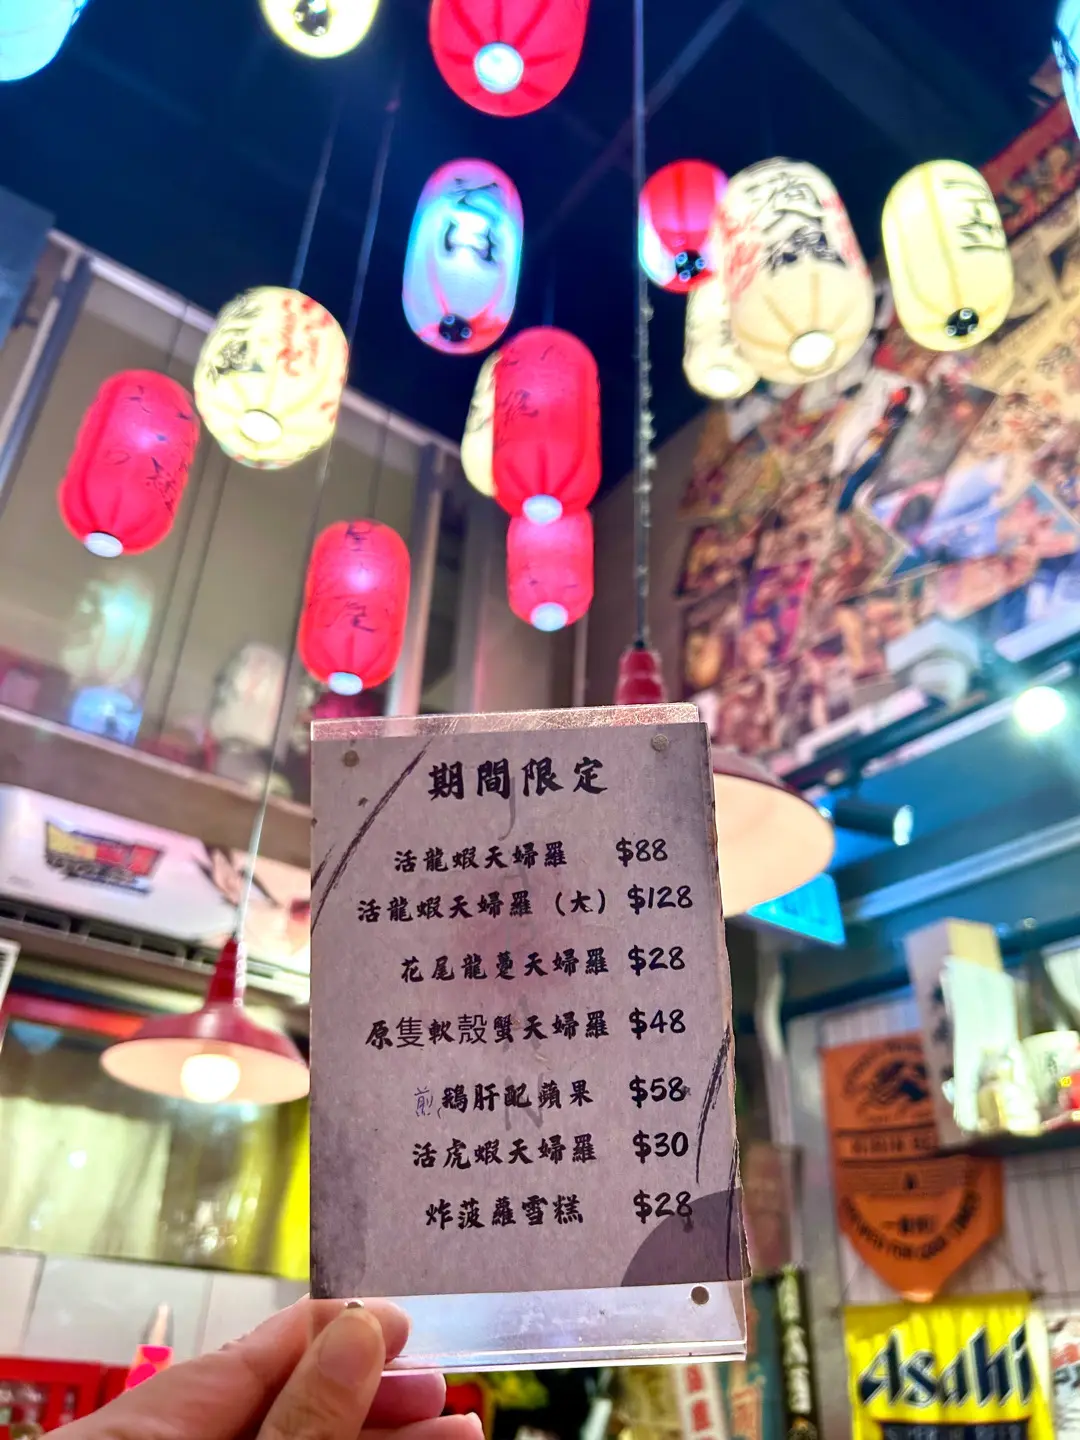 滴入魂
期間限定
活龍蝦天婦羅 $88
活龍蝦天婦羅(大) $128
花尾龍躉天婦羅 $28
原隻軟殼蟹天婦羅 $48
煎鵝肝配蘋果 $58
活虎蝦天婦羅 $30
炸菠蘿雪糕 $28
Asahi